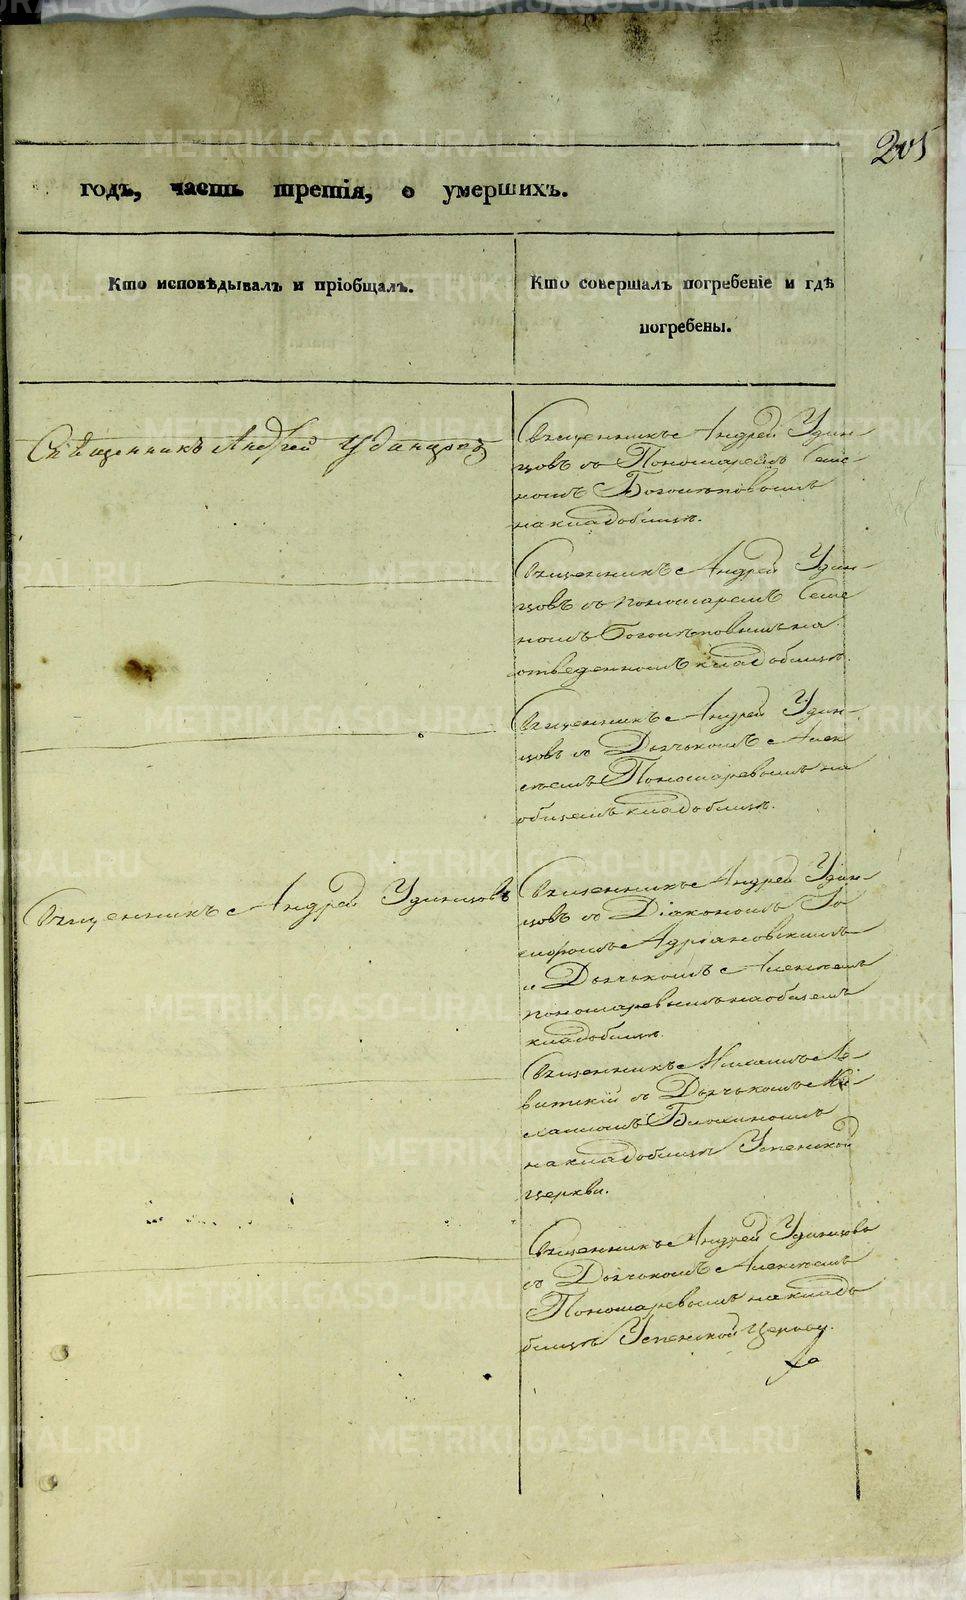 205
годъ, часть третія, о умершихъ.
Кто исповѣдывалъ и пріобщалъ.
Кто совершалъ погребеніе и гдѣ
погребены.
Священникъ Андрей Удинцовъ
Священникъ Андрей Удин-
цовъ съ Пономаремъ Семе
номъ Боголѣповымъ
на кладбищѣ.
Священникъ Андрей Удин-
цовъ съ пономаремъ Семе
номъ Боголѣповымъ на
отведенномъ кладбищѣ.
Священникъ Андрей Удин-
цовъ съ Дьячкомъ Алек
сѣемъ Пономаревымъ на
общемъ кладбищѣ.
Священникъ Андрей Удинцовъ
Священникъ Андрей Удин-
цовъ съ Діакономъ
Адріановскимъ
и Дьячкомъ Алексѣемъ
пономаревымъ на общемъ
кладбищѣ.
Священникъ Ле-
витскій съ Дьячкомъ
на кладбищѣ Успенской
церкви.
Священникъ Андрей Удинцовъ
съ Дьячкомъ Алексѣемъ
Пономаревымъ на клад
бищѣ Успенской церкви.
METRIKI.GASO-URAL.RU